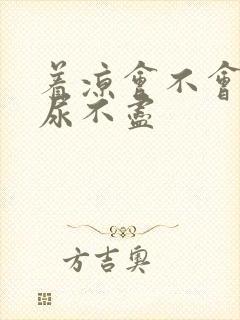 着凉會不會
尿不盡
方吉奥